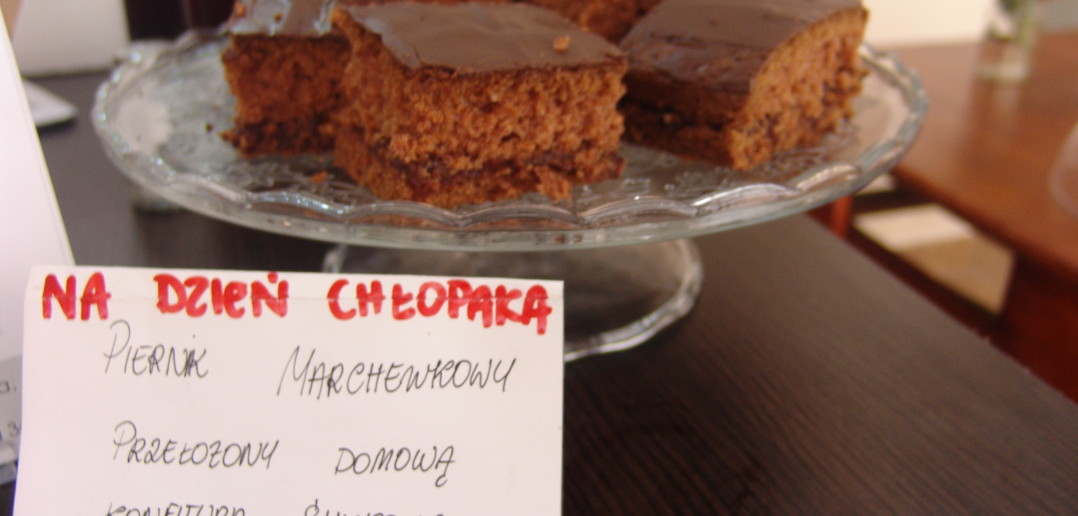 NA DZIEŃ CHŁOPAKA
PIERNIK MARCHEWKOWY
PRZEŁOŻONY DOMOWĄ